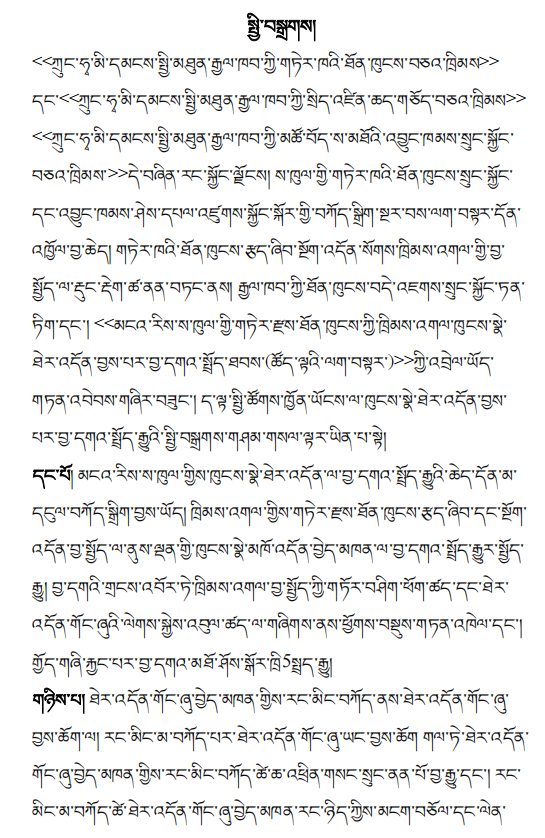 སྤྱི་བསྒྲགས།
<<ཀྲུང་ཧྭ་མི་དམངས་སྤྱི་མཐུན་རྒྱལ་ཁབ་ཀྱི་གཏེར་ཁའི་ཐོན་ཁུངས་བཅའ་ཁྲིམས>>
དང་<<ཀྲུང་ཧྭ་མི་དམངས་སྤྱི་མཐུན་རྒྱལ་ཁབ་ཀྱི་སྲིད་འཛིན་ཆད་གཅོད་བཅའ་ཁྲིམས>>
<<ཀྲུང་ཧྭ་མི་དམངས་སྤྱི་མཐུན་རྒྱལ་ཁབ་ཀྱི་མཚོ་བོད་ས་མཐོའི་འབྱུང་ཁམས་སྲུང་སྐྱོང་
བཅའ་ཁྲིམས་>>དེ་བཞིན་རང་སྐྱོང་ལྗོངས། ས་ཁུལ་གྱི་གཏེར་ཁའི་ཐོན་ཁུངས་སྲུང་སྐྱོང་
དང་འབྱུང་ཁམས་ཤེས་དཔལ་འཛུགས་སྐྱོང་སྐོར་གྱི་བཀོད་སྒྲིག་སྔར་བས་ལག་བསྟར་དོན་
འཁྱོལ་བྱ་ཆེད། གཏེར་ཁའི་ཐོན་ཁུངས་རྩད་ཞིབ་སྔོག་འདོན་སོགས་ཁྲིམས་འགལ་གྱི་བྱ་
སྤྱོད་ལ་རྡུང་རྡེག་ཚ་ནན་བཏང་ནས། རྒྱལ་ཁབ་ཀྱི་ཐོན་ཁུངས་བདེ་འཇགས་སྲུང་སྐྱོང་ཏན་
ཏིག་དང་། <<མངའ་རིས་ས་ཁུལ་གྱི་གཏེར་རྫས་ཐོན་ཁུངས་ཀྱི་ཁྲིམས་འགལ་ཁུངས་སྣེ་
ཐེར་འདོན་བྱས་པར་བྱ་དགའ་སྤྲོད་ཐབས་(ཚོད་ལྟའི་ལག་བསྟར་)>>ཀྱི་འབྲེལ་ཡོད་
གཏན་འབེབས་གཞིར་བཟུང་། ད་ལྟ་སྤྱི་ཚོགས་ཁྱོན་ཡོངས་ལ་ཁུངས་སྣེ་ཐེར་འདོན་བྱས་
པར་བྱ་དགའ་སྤྲོད་རྒྱུའི་སྤྱི་བསྒྲགས་གཤམ་གསལ་ལྟར་ཡིན་པ་སྟེ།
དང་པོ། མངའ་རིས་ས་ཁུལ་གྱིས་ཁུངས་སྣེ་ཐེར་འདོན་ལ་བྱ་དགའ་སྤྲོད་རྒྱུའི་ཆེད་དོན་མ་
དངུལ་བཀོད་སྒྲིག་བྱས་ཡོད། ཁྲིམས་འགལ་གྱིས་གཏེར་རྫས་ཐོན་ཁུངས་རྩད་ཞིབ་དང་སྔོག་
འདོན་བྱ་སྤྱོད་ལ་ནུས་ལྡན་གྱི་ཁུངས་སྣེ་མཁོ་འདོན་བྱེད་མཁན་ལ་བྱ་དགའ་སྤྲོད་རྒྱུར་སྤྱོད་
རྒྱུ། བྱ་དགའི་གྲངས་འབོར་ཏེ་ཁྲིམས་འགལ་བྱ་སྤྱོད་ཀྱི་གཏོར་བཤིག་ཕོག་ཚད་དང་ཐེར་
འདོན་གོང་ཞུའི་ལེགས་སྐྱེས་འབུལ་ཚད་ལ་གཞིགས་ནས་ཕྱོགས་བསྡུས་གཏན་འཁེལ་དང་།
གྱོད་གཞི་རྐྱང་པར་བྱ་དགའ་མཐོ་ཤོས་སྒོར་ཁྲི5སྤྲད་རྒྱུ།
གཉིས་པ། ཐེར་འདོན་གོང་ཞུ་བྱེད་མཁན་གྱིས་རང་མིང་བཀོད་ནས་ཐེར་འདོན་གོང་ཞུ་
བྱས་ཆོག་ལ། རང་མིང་མ་བཀོད་པར་ཐེར་འདོན་གོང་ཞུ་ཡང་བྱས་ཆོག གལ་ཏེ་ཐེར་འདོན་
གོང་ཞུ་བྱེད་མཁན་གྱིས་རང་མིང་བཀོད་ཚེ་ཆ་འཕྲིན་གསང་སྲུང་ནན་པོ་བྱ་རྒྱུ་དང་། རང་
མིང་མ་བཀོད་ཚེ་ཐེར་འདོན་གོང་ཞུ་བྱེད་མཁན་རང་ཉིད་ཀྱིས་མངག་བཅོལ་དང་ལེན་